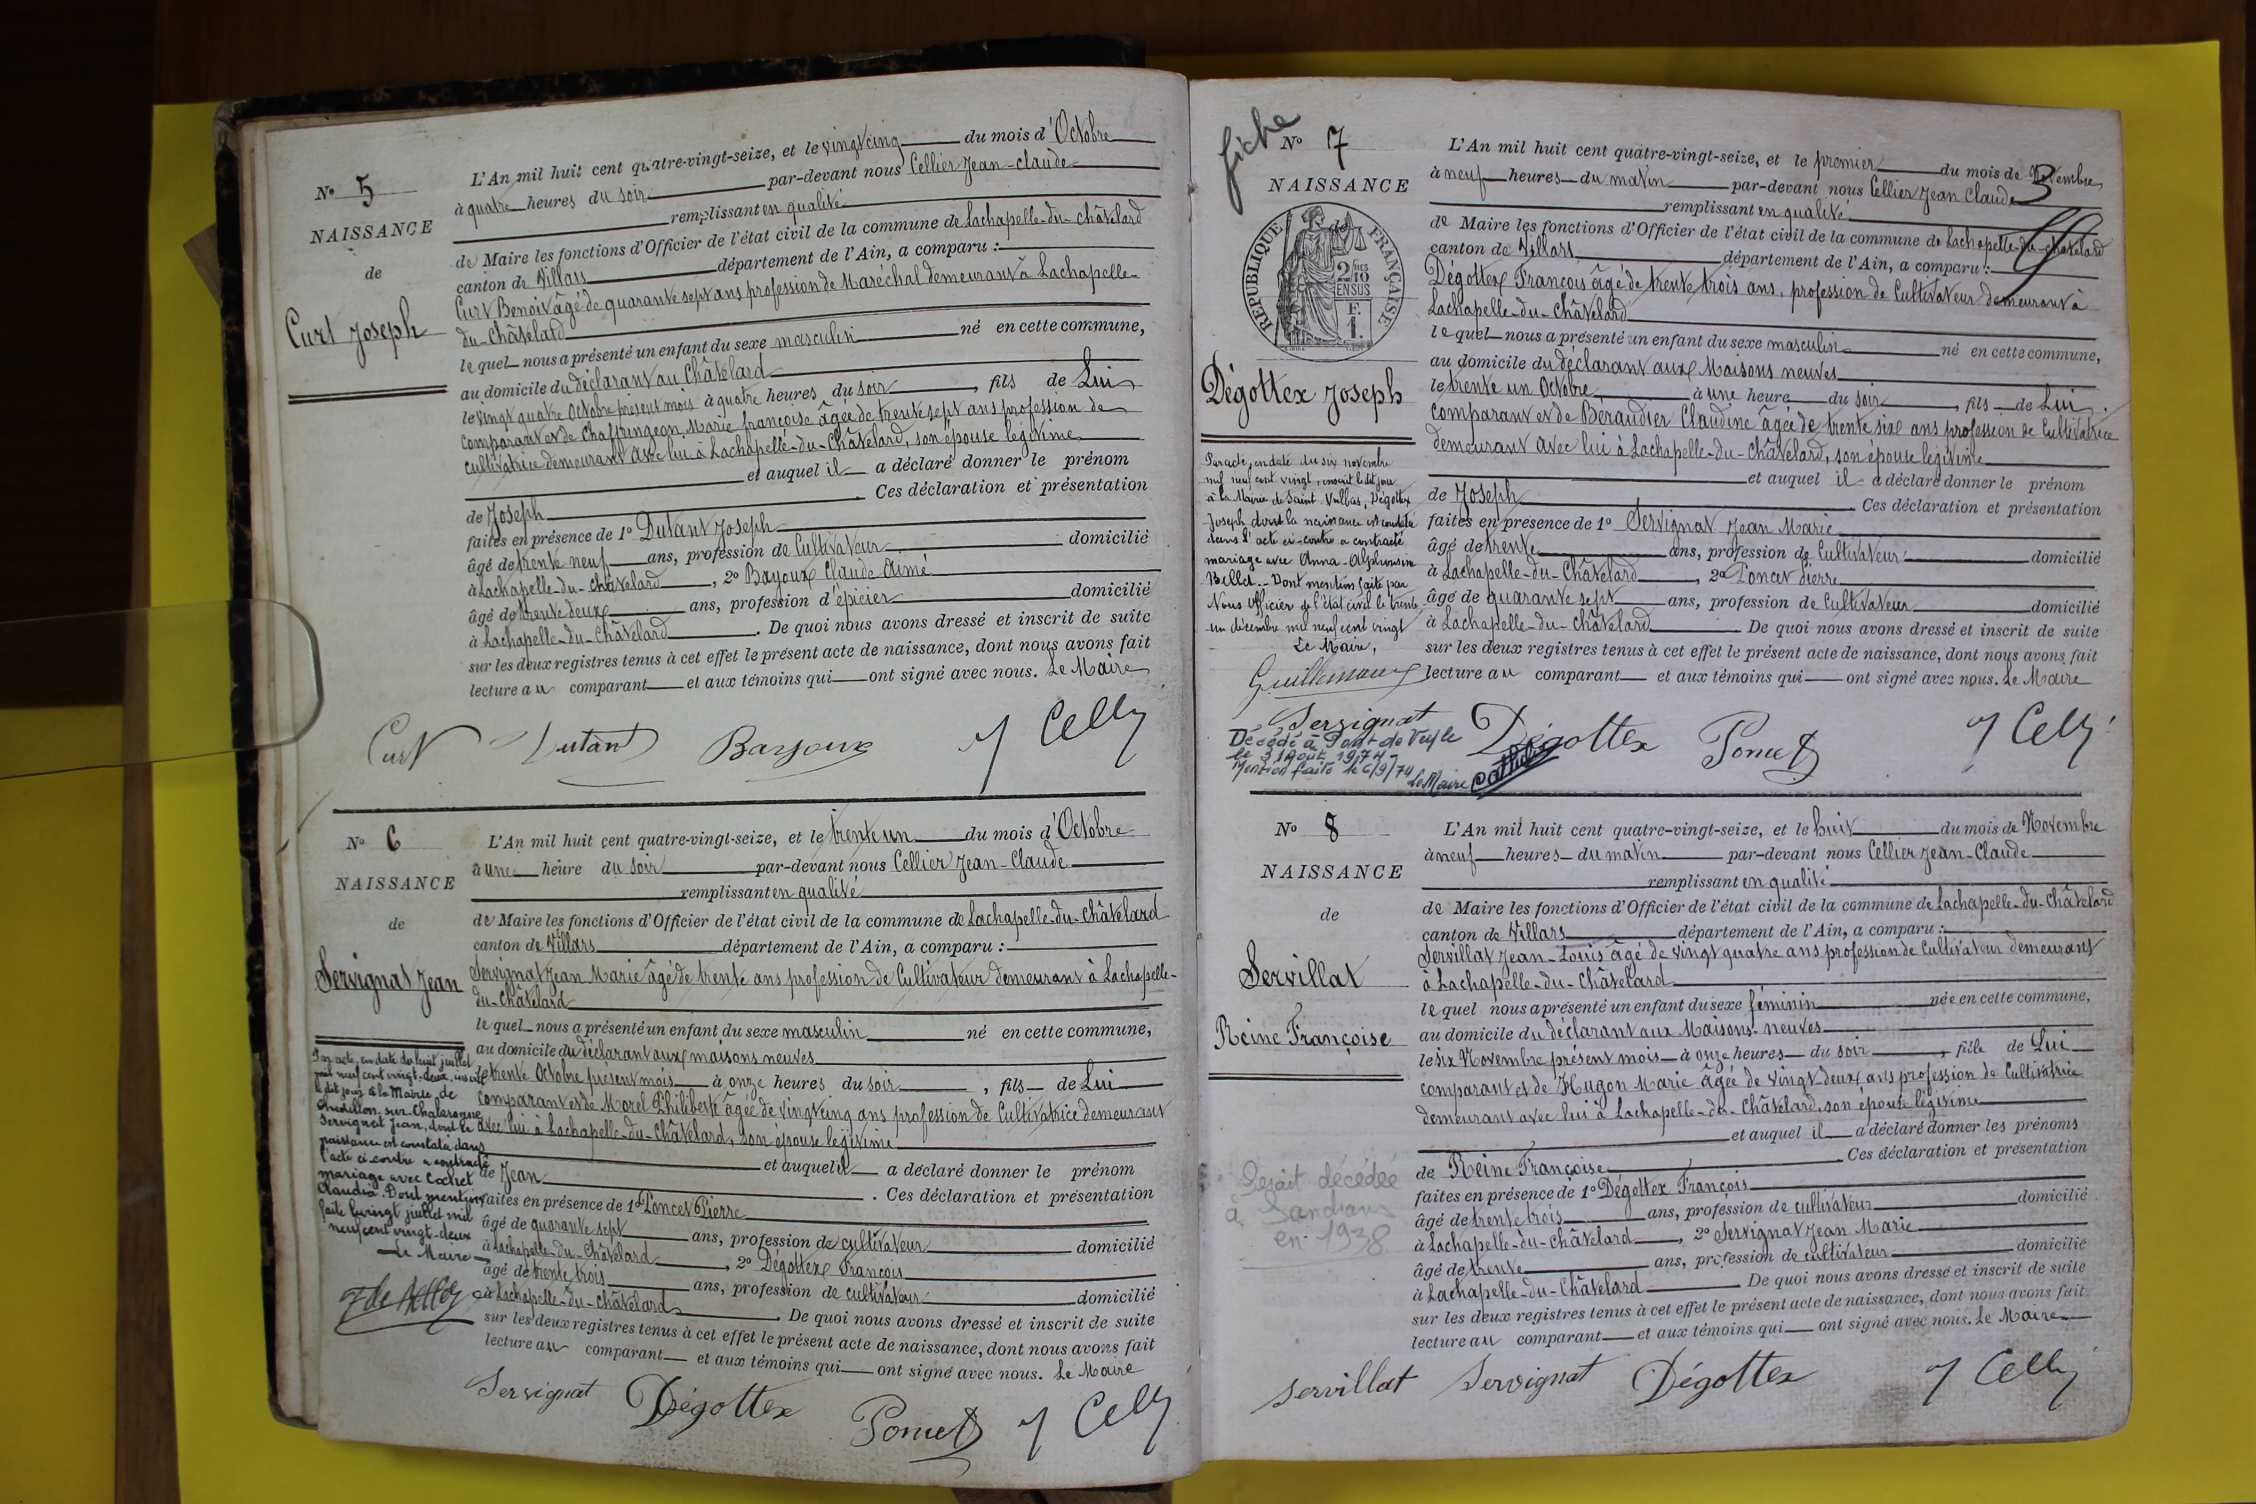 N° 5
NAISSANCE
de
Curt Joseph
L'An mil huit cent quatre-vingt-seize, et le vingt cinq du mois d'Octobre
à quatre heures du soir par-devant nous Cellier Jean-Claude
remplissant en qualité
de Maire les fonctions d'Officier de l'état civil de la commune de Lachapelle-du-Châtelard
canton de Villars département de l'Ain, a comparu :
Curt Benoit âgé de quarante sept ans profession de Maréchal demeurant à Lachapelle-
du-Châtelard
le quel nous a présenté un enfant du sexe masculin né en cette commune,
au domicile du déclarant au Châtelard
le vingt quatre Octobre présent mois à quatre heures du soir, fils de Lui
comparant et de Chaffringeon Marie françoise âgée de trente sept ans profession de
cultivatrice demeurant avec lui à Lachapelle-du-Châtelard, son épouse légitime
et auquel il a déclaré donner le prénom
de Joseph Ces déclaration et présentation
faites en présence de 1° Dutant Joseph
âgé de trente neuf ans, profession de Cultivateur domicilié
à Lachapelle-du-Châtelard, 2° Bayoux Claude Aimé
âgé de trente deux ans, profession d'épicier domicilié
à Lachapelle-du-Châtelard. De quoi nous avons dressé et inscrit de suite
sur les deux registres tenus à cet effet le présent acte de naissance, dont nous avons fait
lecture au comparant et aux témoins qui ont signé avec nous. Le Maire
Curt Dutant Bayoux J Celly
N° 6
NAISSANCE
de
Servignat Jean
L'An mil huit cent quatre-vingt-seize, et le trente un du mois d'Octobre
à une heure du soir par-devant nous Cellier Jean-Claude
remplissant en qualité
de Maire les fonctions d'Officier de l'état civil de la commune de Lachapelle-du-Châtelard
canton de Villars département de l'Ain, a comparu :
Servignat Jean Marie âgé de trente ans profession de Cultivateur demeurant à Lachapelle-
du-Châtelard
le quel nous a présenté un enfant du sexe masculin né en cette commune,
au domicile du déclarant aux maisons neuves
le trente Octobre présent mois à onze heures du soir, fils de Lui
comparant et de Morel Philiberte âgée de vingt cinq ans profession de Cultivatrice demeurant
avec lui à Lachapelle-du-Châtelard, son épouse légitime
et auquel il a déclaré donner le prénom
de Jean. Ces déclaration et présentation
faites en présence de 1° Poncet Pierre
âgé de quarante sept ans, profession de cultivateur domicilié
à Lachapelle-du-Châtelard, 2° Dégottex François
âgé de trente trois ans, profession de cultivateur domicilié
à Lachapelle-du-Châtelard. De quoi nous avons dressé et inscrit de suite
sur les deux registres tenus à cet effet le présent acte de naissance, dont nous avons fait
lecture au comparant et aux témoins qui ont signé avec nous. Le Maire
Par acte, en date du huit juillet
mil neuf cent vingt-deux, inscrit
le dit jour à la Mairie de
Chatillon sur Chalaronne
Servignat Jean, dont la
naissance est constatée dans
l'acte ci-contre a contracté
mariage avec Cochet
Claudia. Dont mention
faite le vingt juillet mil
neuf cent vingt-deux
Le Maire
Servignat Dégottex Poncet J Celly
fiche
N° 7
NAISSANCE
de
RÉPUBLIQUE FRANÇAISE
2/10
EN SUS
F.
1.
Dégottex Joseph
L'An mil huit cent quatre-vingt-seize, et le premier du mois de Novembre
à neuf heures du matin par-devant nous Cellier Jean Claude
remplissant en qualité
de Maire les fonctions d'Officier de l'état civil de la commune de Lachapelle-du-Châtelard
canton de Villars département de l'Ain, a comparu :
Dégottex François âgé de trente trois ans, profession de Cultivateur demeurant à
Lachapelle-du-Châtelard
le quel nous a présenté un enfant du sexe masculin né en cette commune,
au domicile du déclarant aux Maisons neuves
le trente un Octobre, à une heure du soir, fils de Lui
comparant et de Beraudier Claudine âgée de trente six ans profession de Cultivatrice
demeurant avec lui à Lachapelle-du-Châtelard, son épouse légitime
et auquel il a déclaré donner le prénom
de Joseph. Ces déclaration et présentation
faites en présence de 1° Servignat Jean Marie
âgé de trente ans, profession de Cultivateur domicilié
à Lachapelle-du-Châtelard, 2° Poncet Pierre
âgé de quarante sept ans, profession de Cultivateur domicilié
à Lachapelle-du-Châtelard. De quoi nous avons dressé et inscrit de suite
sur les deux registres tenus à cet effet le présent acte de naissance, dont nous avons fait
lecture au comparant et aux témoins qui ont signé avec nous. Le Maire
Par acte, en date du six novembre
mil neuf cent vingt, inscrit le dit jour
à la Mairie de Saint Vulbas, Dégottex
Joseph dont la naissance est constatée
dans l'acte ci-contre a contracté
mariage avec Anna-Alphonsine
Billet. Dont mention faite par
Nous Officier de l'état civil le trente-
un décembre mil neuf cent vingt
Le Maire,
Guillemaux
Servignat Dégottex Poncet J Celly
Décédé à Pont de Veyle
le 31 Août 1974
Mention faite le 6/9/74 Le Maire
N° 8
NAISSANCE
de
Servillat
Reine Françoise
L'An mil huit cent quatre-vingt-seize, et le huit du mois de Novembre
à neuf heures du matin par-devant nous Cellier Jean-Claude
remplissant en qualité
de Maire les fonctions d'Officier de l'état civil de la commune de Lachapelle-du-Châtelard
canton de Villars département de l'Ain, a comparu :
Servillat Jean-Louis âgé de vingt quatre ans profession de Cultivateur demeurant
à Lachapelle-du-Châtelard
le quel nous a présenté un enfant du sexe féminin née en cette commune,
au domicile du déclarant aux Maisons-neuves
le six Novembre présent mois à onze heures du soir, fille de Lui
comparant et de Hugon Marie âgée de vingt deux ans profession de Cultivatrice
demeurant avec lui à Lachapelle-du-Châtelard, son épouse légitime
et auquel il a déclaré donner les prénoms
de Reine Françoise. Ces déclaration et présentation
faites en présence de 1° Dégottex François
âgé de trente trois ans, profession de cultivateur domicilié
à Lachapelle-du-Châtelard, 2° Servignat Jean Marie
âgé de trente ans, profession de cultivateur domicilié
à Lachapelle-du-Châtelard. De quoi nous avons dressé et inscrit de suite
sur les deux registres tenus à cet effet le présent acte de naissance, dont nous avons fait
lecture au comparant et aux témoins qui ont signé avec nous. Le Maire
Serait décédée
à Sandrans
en 1938
servillat Servignat Dégottex J Celly